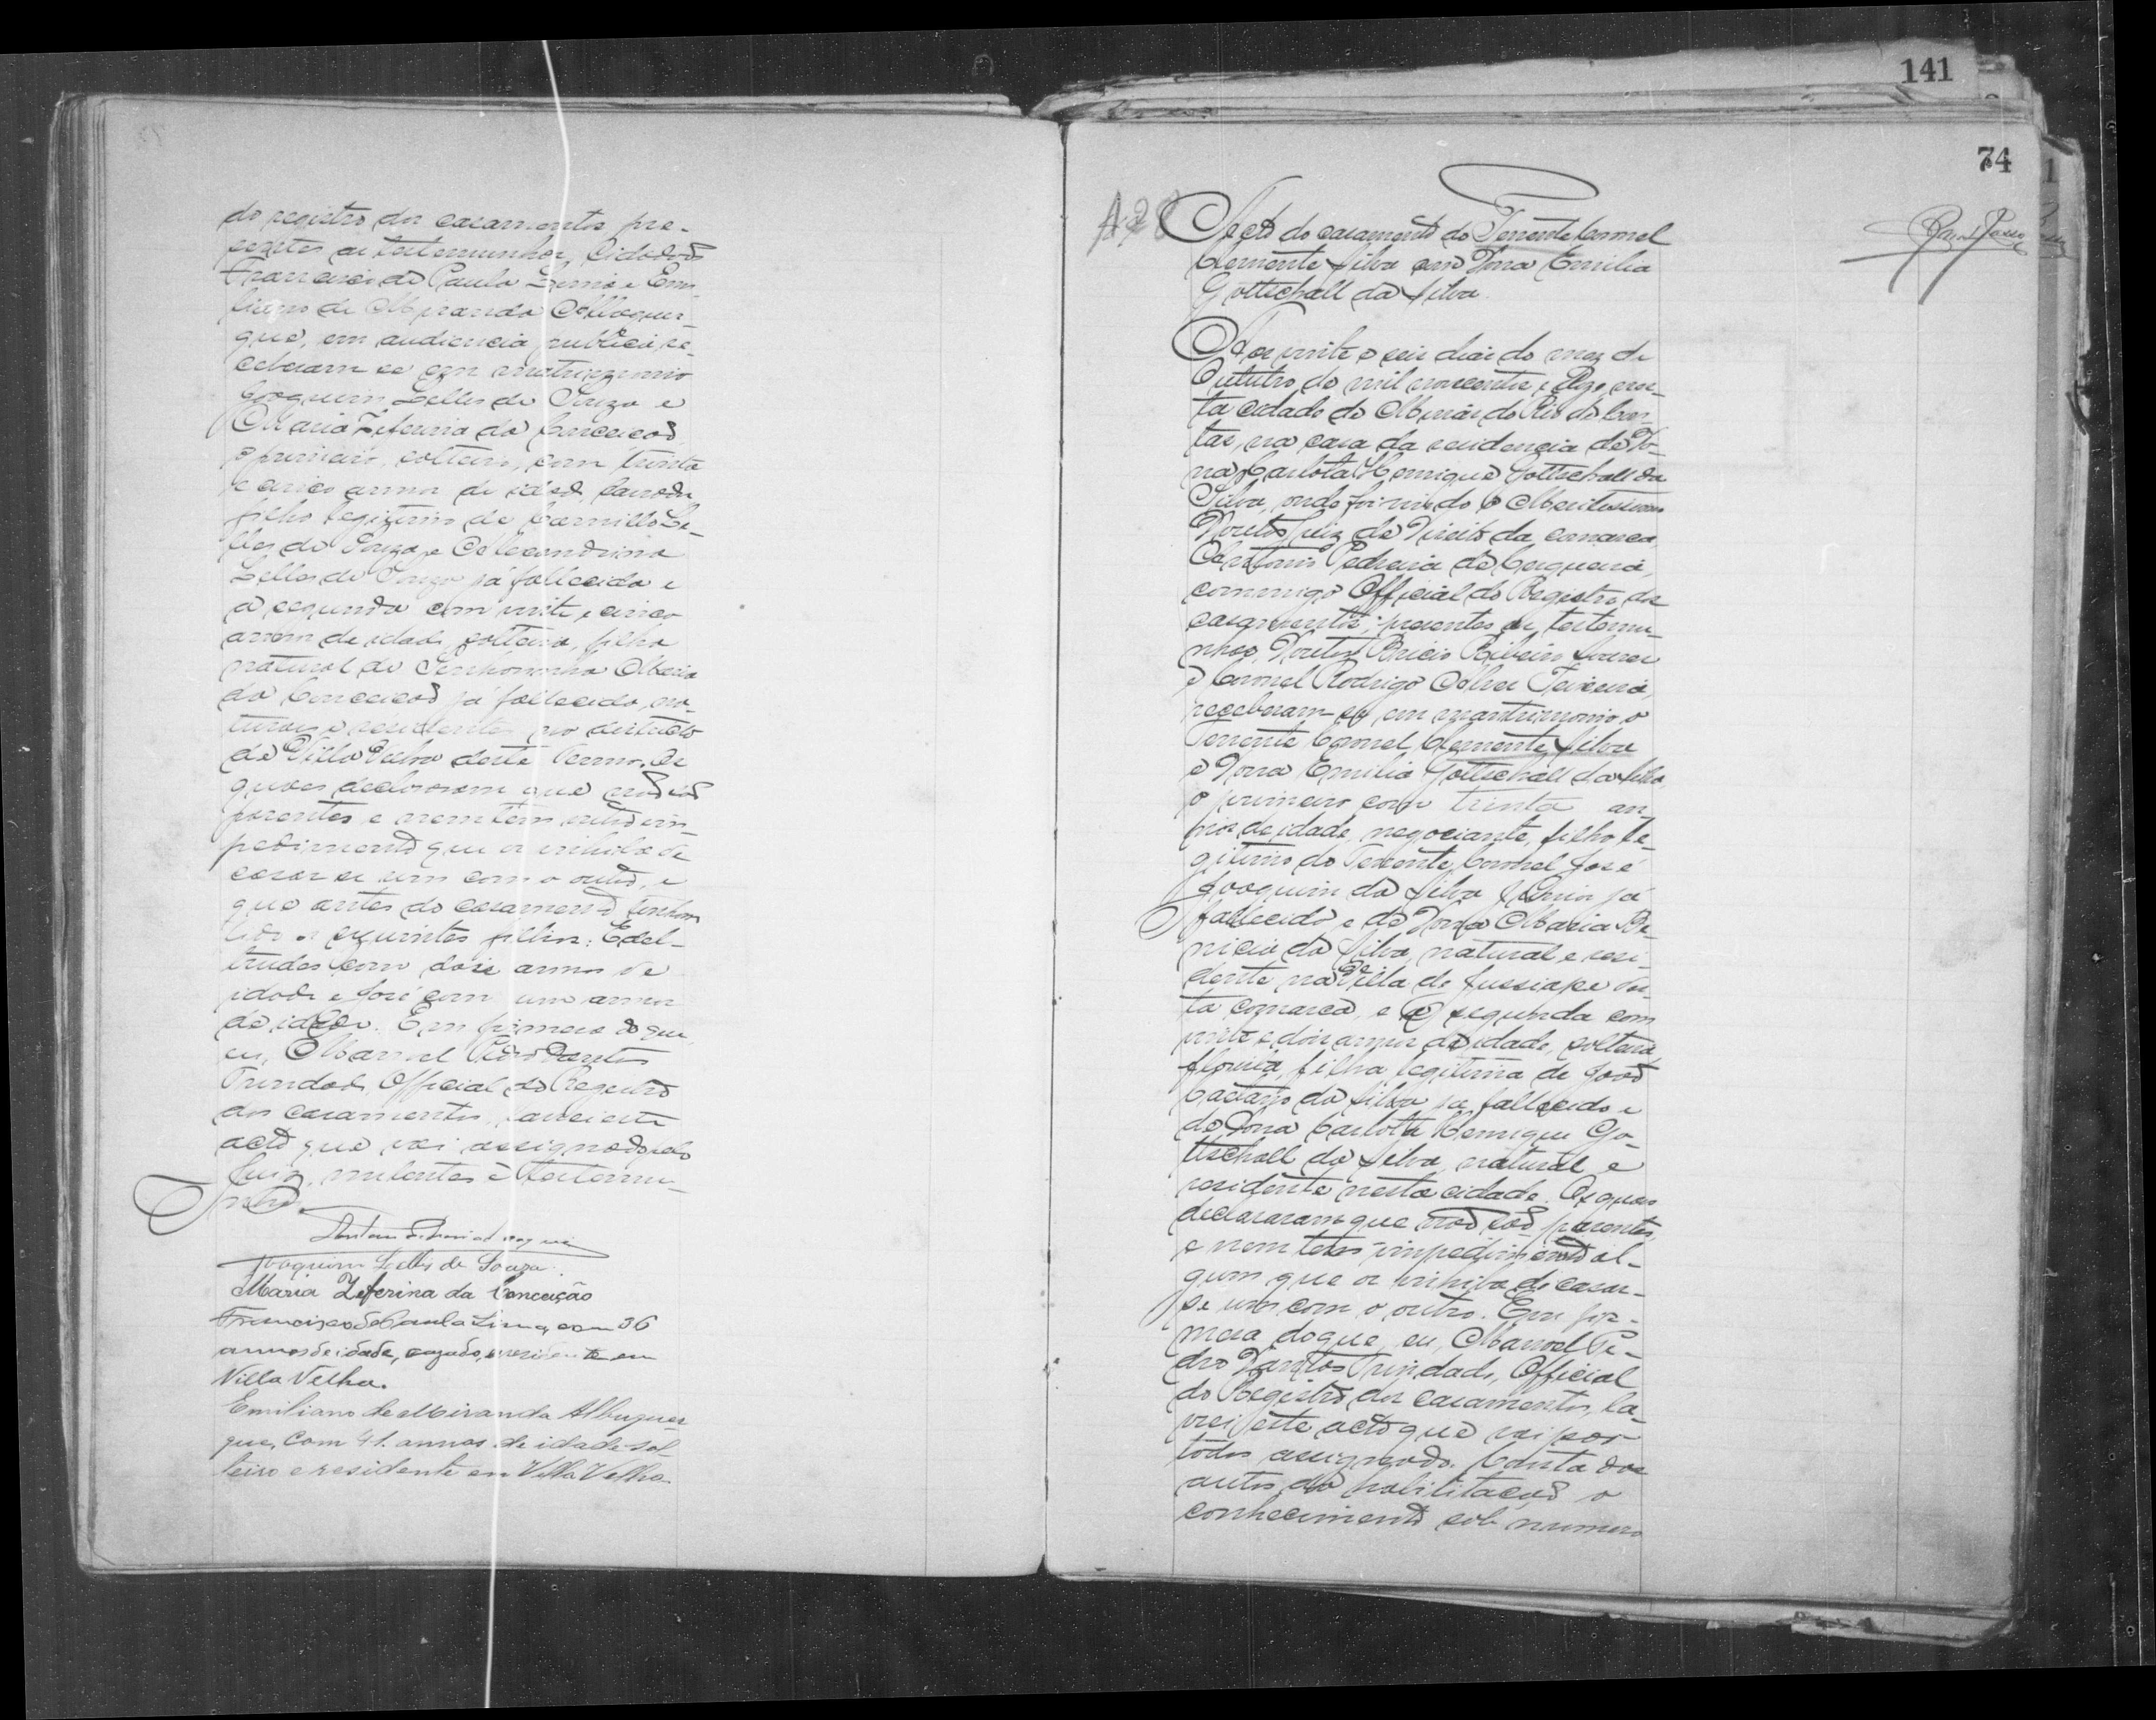 do registro dos casamentos, pre-
sentes as testemunhas, Cidadãos
Francisco de Paula Lima e Emi-
liano de Miranda Albuquer-
que, em audiencia publica, re-
ceberam-se em matrimonio
Joaquim Lelles de Souza e
Maria Zeferina da Conceicão
o primeiro, solteiro, com trinta
e cinco annos de idade,
filho legitimo de Camillo Le-
lles de Souza e Alexandrina
Lelles de Souza já fallecida e
a segunda com vinte e cinco
annos de idade, solteira, filha
natural de Senhorinha Maria
da Conceicão já fallecida, na-
turaes e residentes no districto
de Villa Velha deste Termo. Os
quaes declararam que não são
parentes e nem têm outro im-
pedimento que os inhiba de
casar-se um com o outro, e
que antes do casamento tinham
tido os seguintes filhos: Edel-
trudes com dois annos de
idade e José com um anno
de idade. Em firmeza do que,
eu, Manoel Pedro Dantas
Trindade, Official do Registro
dos casamentos, lavrei este
acto que vai assignado pelo
Juiz, nubentes e testemu-
nhas.
Joaquim Lelles de Souza.
Maria Zeferina da Conceição
Francisco de Paula Lima, com 36
annos de idade, cazado, e residente em
Villa Velha.
Emiliano de Miranda Albuquer
que, com 41 annos de idade sol
teiro e residente em Villa Velha.
141
74
Acto do casamento do Tenente Coronel
Clemente Silva com Dona Emilia
Gottschall da Silva.
Aos vinte e seis dias do mez de
Outubro de mil novecentos e doze, nes-
ta cidade de Minas do Rio de Con-
tas, na casa da residencia de Do-
na Carlota Henrique Gottschall da
Silva, onde foi vindo o Meritissimo
Doutor Juiz de Direito da comarca,
Antonio Pedreira de Cerqueira,
commigo Official do Registro dos
casamentos; presentes as testemu-
nhas, Doutor Bricio Ribeiro
e Coronel Rodrigo Alves Teixeira,
receberam-se em matrimonio o
Tenente Coronel Clemente Silva
e Dona Emilia Gottschall da Silva,
o primeiro com trinta an-
nos de idade, negociante, filho le-
gitimo do Tenente Coronel José
Joaquim da Silva Junior já
fallecido e de Dona Maria Be-
nicia da Silva, natural e resi-
dente na Villa de Jussiape des-
ta comarca, e a segunda com
vinte e dois annos de idade, solteira,
filha legitima de João
Caetano da Silva já fallecido e
de Dona Carlota Henrique Go-
ttschall da Silva, natural e
residente nesta cidade. Os quaes
declararam que não são parentes,
e nem tem impedimento al-
gum que os inhiba de casar-
se um com o outro. Em fir-
meza do que, eu, Manoel Pe-
dro Dantas Trindade, Official
do Registro dos casamentos, la-
vrei este acto que vai por
todos assignado. Consta dos
autos da habilitacão o
conhecimento sob numero